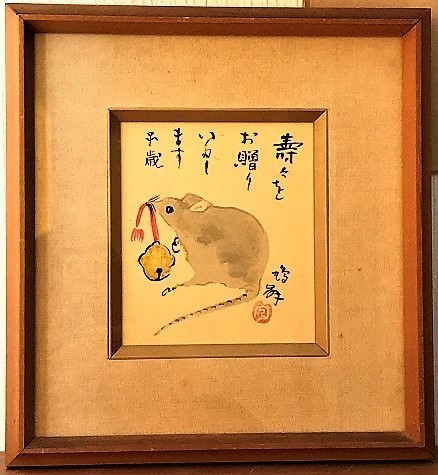 寿々を
お贈り
いたし
ます
子歳